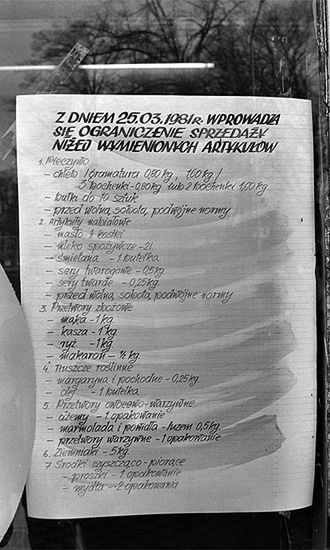 Z DNIEM 25.03.1981r. WPROWADZA
SIĘ OGRANICZENIE SPRZEDAŻY
NIŻEJ WYMIENIONYCH ARTYKUŁÓW
1. Pieczywo
- chleb /gramatura 0,80 kg, 1,60 kg/
3 bochenki - 0,80 kg. lub 2 bochenki 1,60 kg
- bułki do 10 sztuk
- przed wolną sobotą, podwójne normy
2. Artykuły nabiałowe
- masło kostki
- mleko spożywcze - 2l.
- śmietana - 1 butelka
- sery twarogowe - 0,5 kg
- sery twarde - 0,25 kg.
- przed wolną sobotą, podwójne normy
3. Przetwory zbożowe
- mąka - 1 kg.
- kasza - 1 kg
- ryż - 1 kg
- makaron - ½ kg
4. Tłuszcze roślinne
- margaryna i pochodne - 0,25 kg.
- olej - 1 butelka
5. Przetwory owocowo-warzywne
- dżemy - 1 opakowanie
- marmolada i powidła - luzem 0,5 kg.
- przetwory warzywne - 1 opakowanie
6. Ziemniaki - 5 kg.
7 Środki czyszcząco-piorące
- proszki - 1 opakowanie
- mydła - 2 opakowania